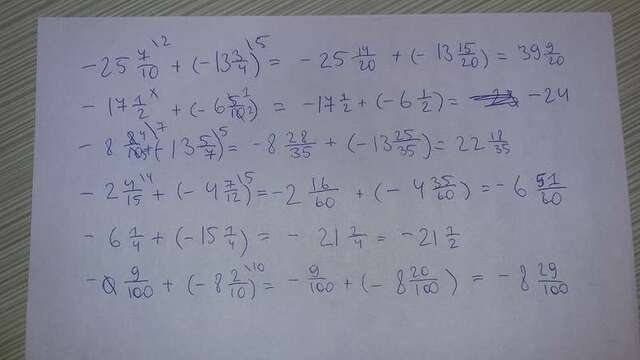 -25 7/10\2 + (-13 3/4\5) = -25 14/20 + (-13 15/20) = 39 9/20
-17 1/2 + (-6 5/10) = -17 1/2 + (-6 1/2) = -24
-8 + (-13 5/7\5) = -8 28/35 + (-13 25/35) = 22 18/35
-2 4/15\4 + (-4 7/12\5) = -2 16/60 + (-4 35/60) = -6 51/60
-6 1/4 + (-15 1/4) = -21 2/4 = -21 1/2
-0 9/100 + (-8 2/10\10) = -9/100 + (-8 20/100) = -8 29/100